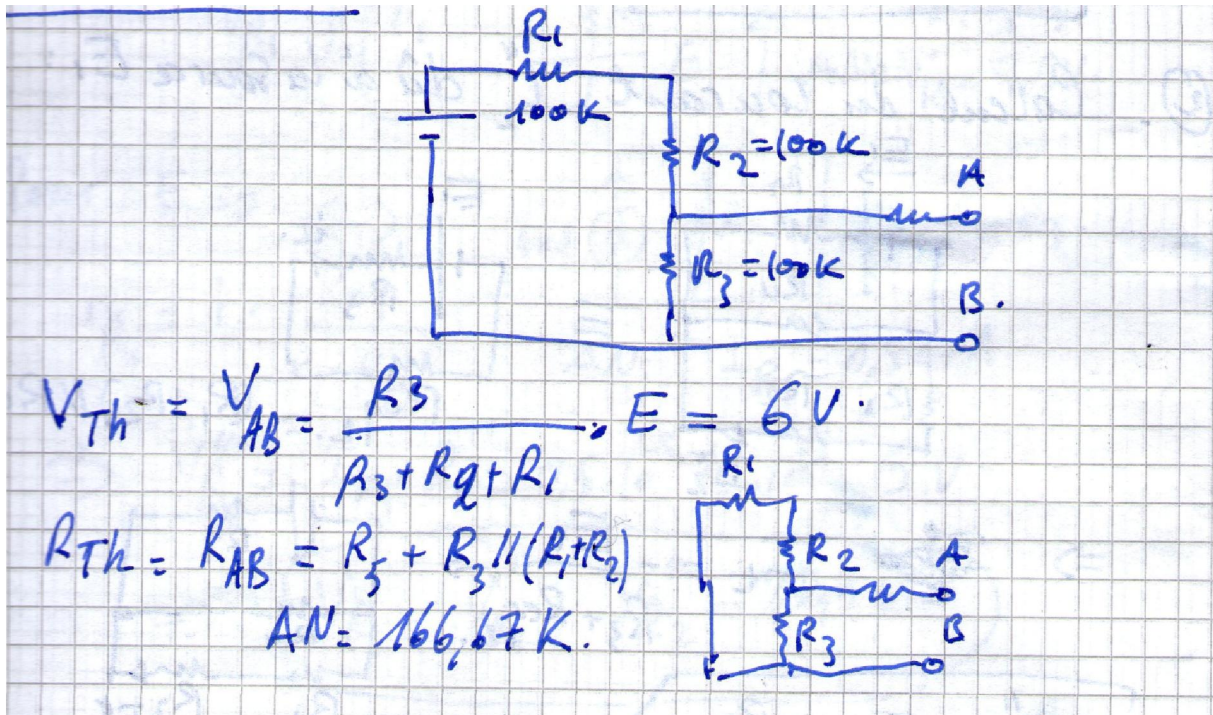 R1
100K
R2=100K
A
R3=100K
B.
VTh = VAB = R3 / R3+R2+R1 . E = 6V.
R1
RTh = RAB = R5 + R3//(R1+R2)
R2 A
AN= 166,67K.
R3 B